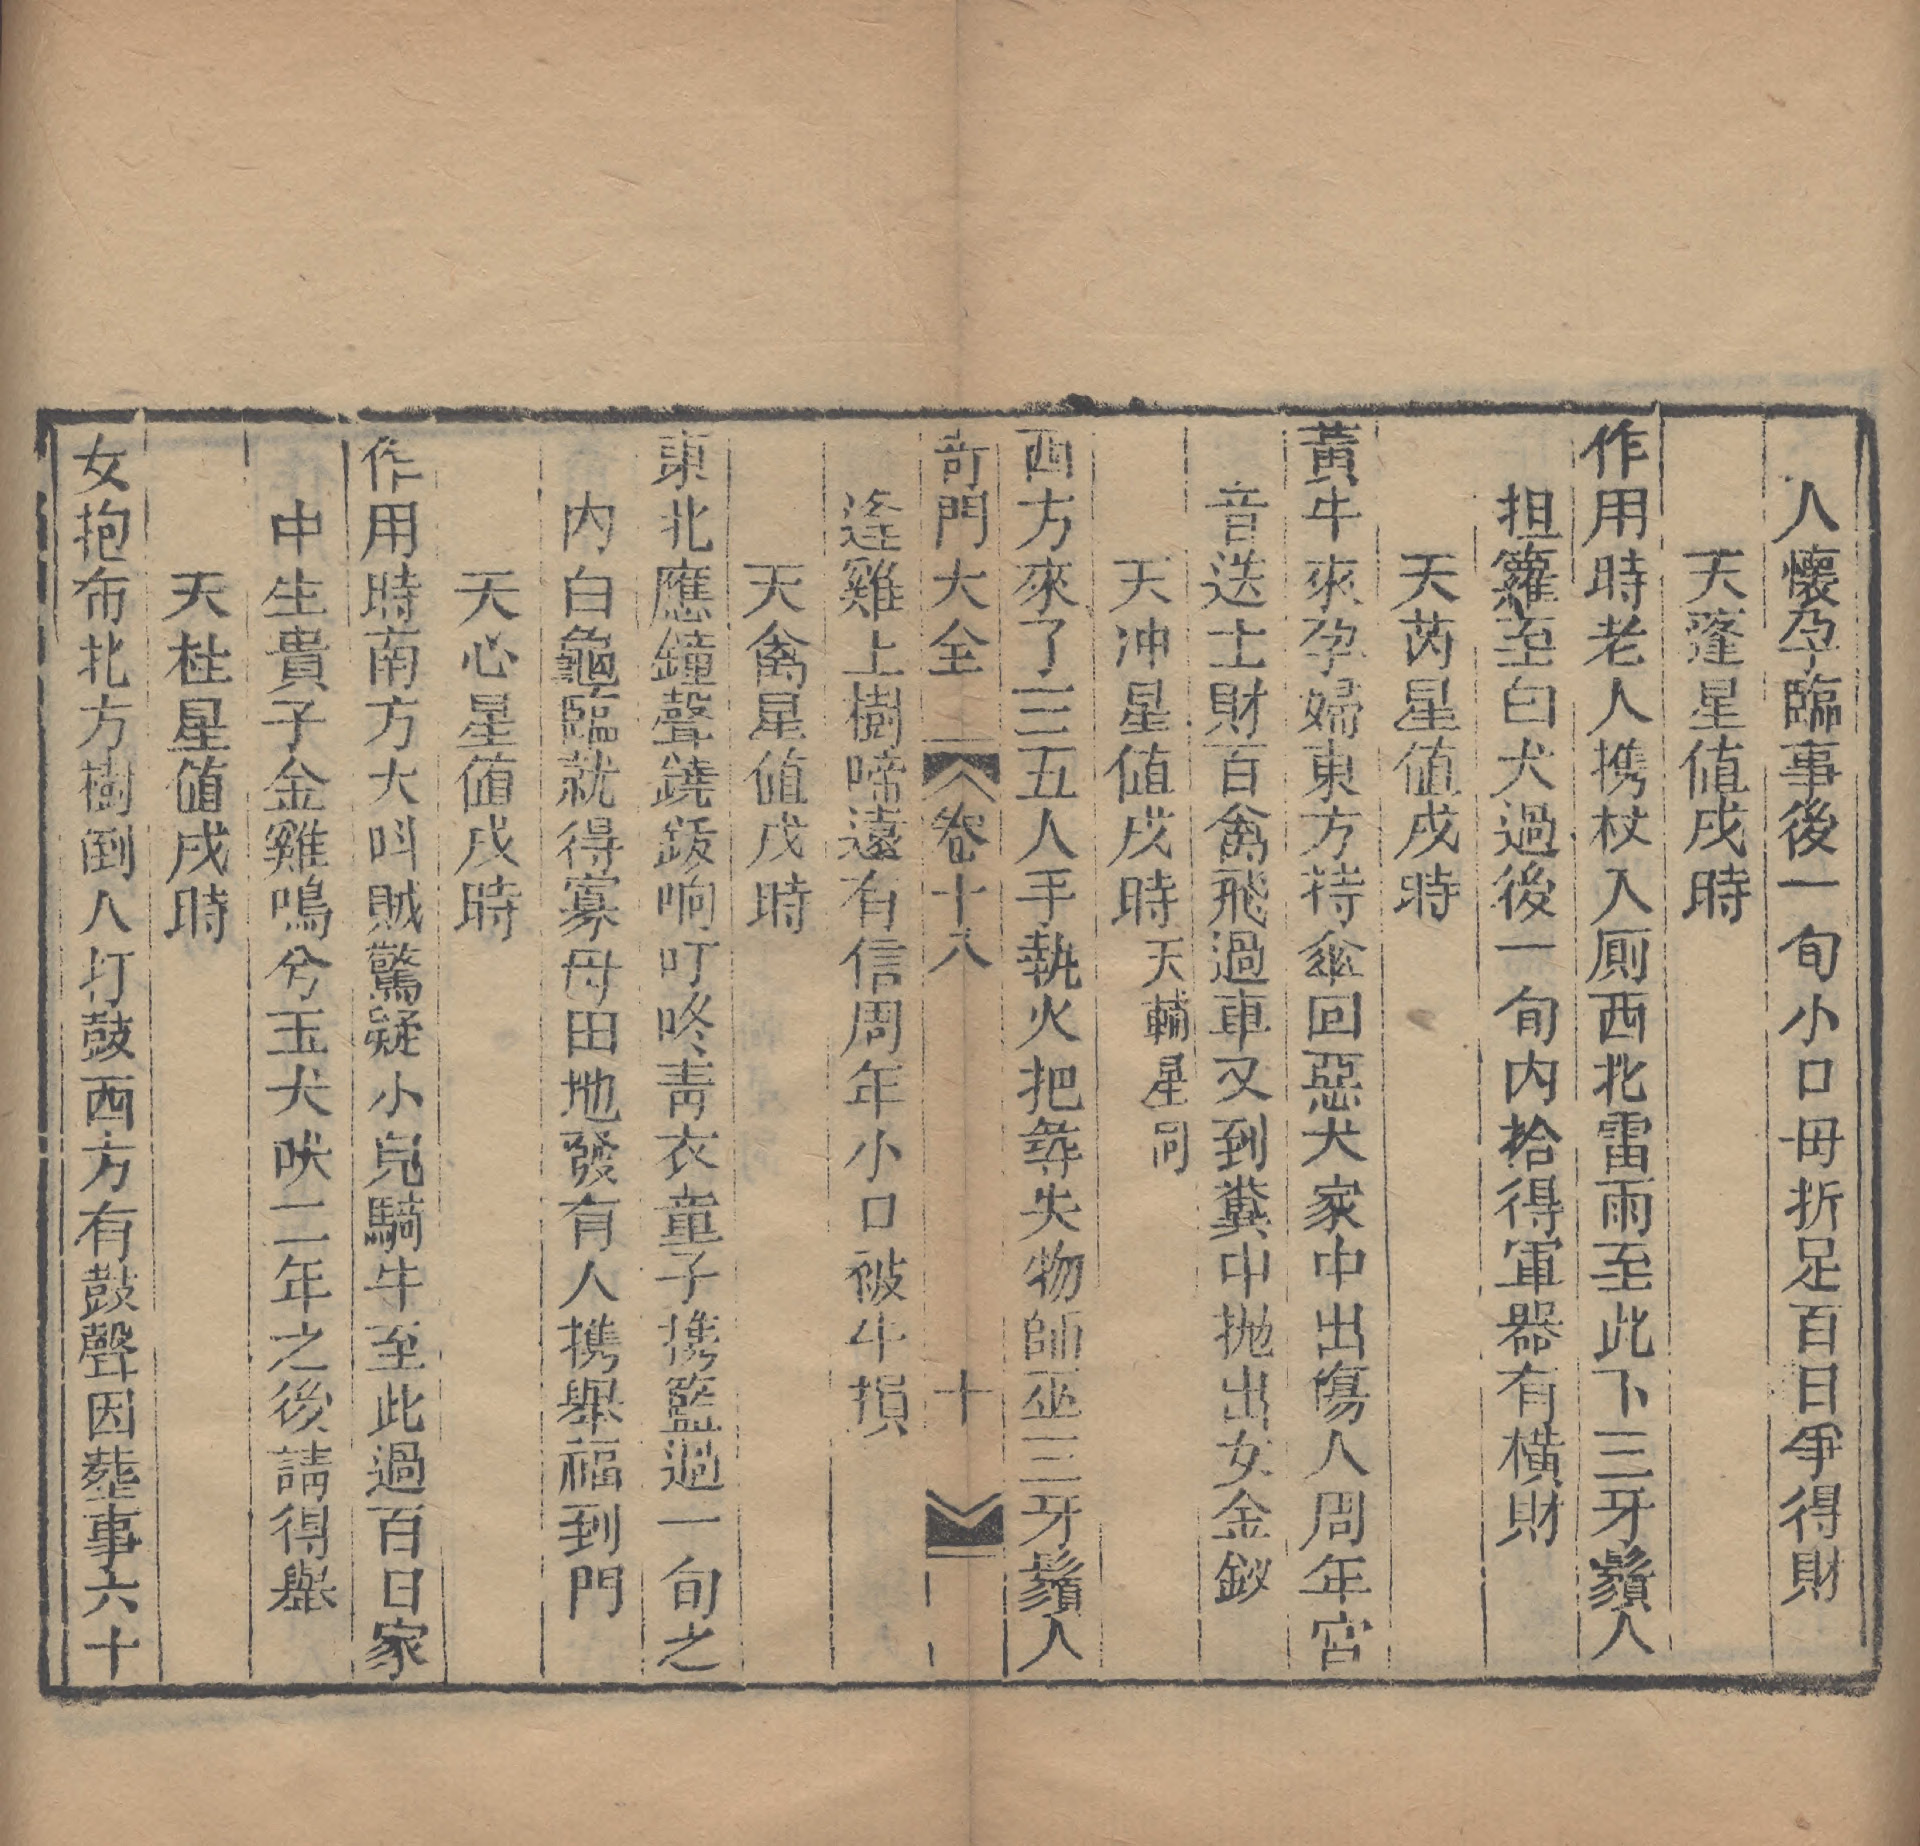 人懷孕臨事後一旬小口毋折足百日爭得財
天蓬星値戌時
作用時老人携杖入厠西北雷雨至此下三牙鬚人
担籮至白犬過後一旬内拾得軍器有橫財
天芮星値戌時
黃牛來孕婦東方持傘回惡犬家中出傷人周年宮
音送士財百禽飛過車又到糞中抛出女金釵
天冲星値戌時天輔星同
西方來了三五人手執火把尋失物師巫三牙鬚人
竒門大全 卷十八 十
逢雞上樹啼遠有信周年小口被牛損
天禽星値戌時
東北應鐘聲鐃鈸响叮咚靑衣童子携籃過一旬之
内白龜臨就得寡母田地發有人携舉福到門
天心星値戌時
作用時南方大呌賊驚疑小兒騎牛至此過百日家
中生貴子金雞鳴兮玉犬吠二年之後請得舉
天柱星値戌時
女抱布北方樹倒人打鼓西方有鼓聲因塟事六十